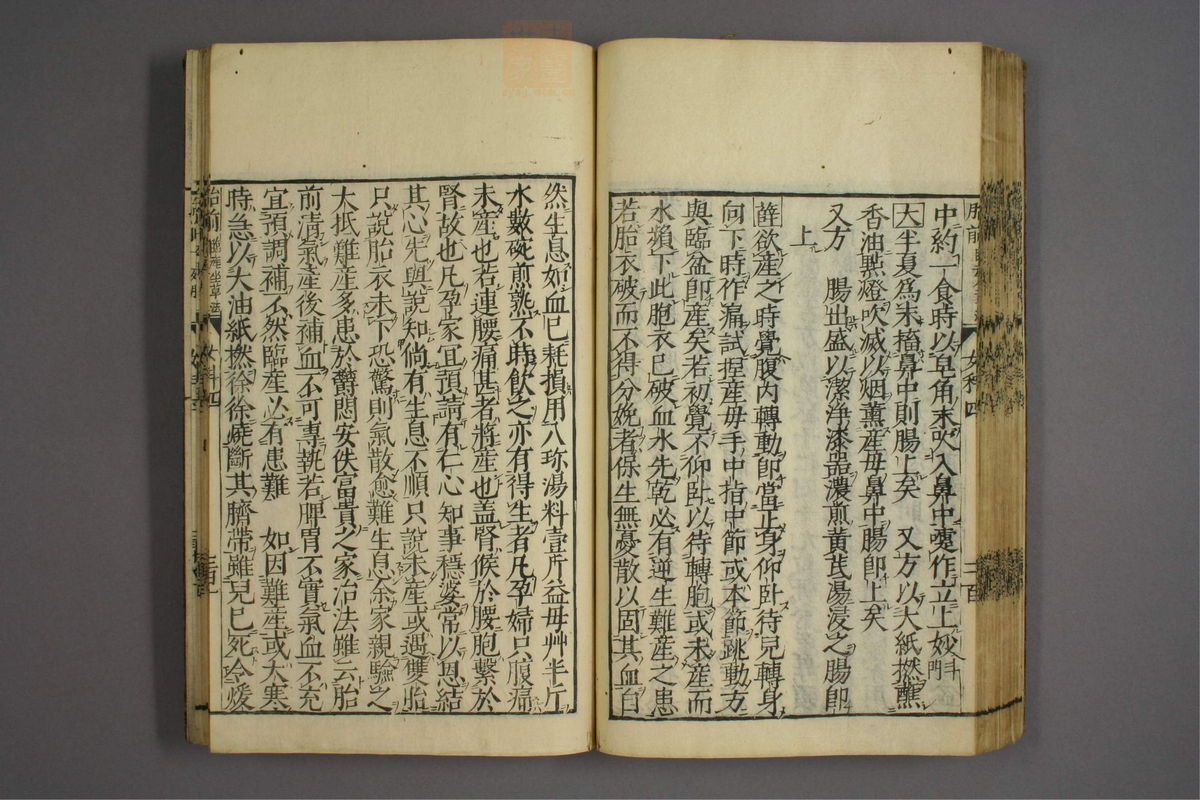 中約一食時以皂角末吹入鼻中嚏作立上妙斗門
大半夏為末搐鼻中則腸上矣　又方以大紙撚蘸
香油點燈吹滅以烟薰産母鼻中腸即上矣
又方　腸出盛以潔淨漆器濃煎黄茋湯浸之腸即
上
薛欲産之時覺腹内轉動即當正身仰臥待兒轉身
向下時作痛試捏産母手中指中節或本節跳動方
與臨盆即産矣若初覺不仰臥以待轉胞或未産而
水頻下此胞衣已破血水先乾必有逆生難産之患
若胎衣破而不得分娩者保生無憂散以固其血自
然生息如血已耗損用八珍湯料壹斤益母艸半斤
水數碗煎熟不時飲之亦有得生者凡孕婦只腹痛
未産也若連腰痛甚者將産也盖腎候於腰胞繫於
腎故也凡孕家冝預請有仁心知事穩婆常以恩結
其心先與說知倘有生息不順只說未産或遇雙胎
只說胎衣未下恐驚則氣散愈難生息余家親驗之
大抵難産多患於欝悶安佚富貴之家治法雖云胎
前清氣産後補血不可專執若脾胃不實氣血不充
宜預調補不然臨産必有患難　如因難産或大寒
時急以大油紙撚徐徐燒斷其臍帶雖兒已死令煖
胎前　臨産坐草法　女科四